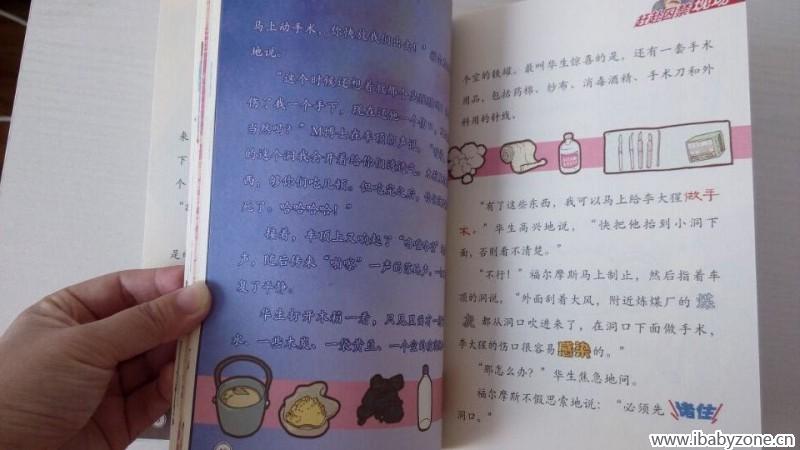 马上动手术，你快放我们出去！”
地说。
“这个时候还想着救那个
伤了我一个手下，现在还他一个伤
当然吗？”M博士在车顶的声说，
的这个洞我会开着给你们透透气，
西，够你们吃几顿。但吃完之后，你
死了。哈哈哈哈！”
接着，车顶上又响起了“
声，随后传来“啪喀”一声的落
复了平静。
华生打开木箱一看，只见里面有一
水、一些木炭、一袋黄豆、一个空的
来
下
个
足
赶赴囚禁现场
个空的铁罐。最叫华生惊喜的是，还有一套手术
用品，包括药棉、纱布、消毒酒精、手术刀和外
科用的针线。
“有了这些东西，我可以马上给李大猩做手
术。”华生高兴地说，“快把他抬到小洞下
面，否则看不清楚。”
“不行！”福尔摩斯马上制止，然后指着车
顶的洞说，“外面刮着大风，附近炼煤厂的煤
灰都从洞口吹进来了，在洞口下面做手术，
李大猩的伤口很容易感染的。”
“那怎么办？”华生焦急地问。
福尔摩斯不假思索地说：“必须先堵住
洞口。”
www.ibabyzone.cn